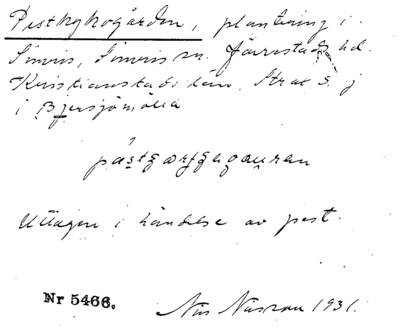 Pestkyrkogården, plantering i
Simris, Simris sn. Järrestads hd.
Kristianstads län. Strax S.
i Bjersjömölla
Uttagen i händelse av pest.
Nr 5466.
Nils 1931.